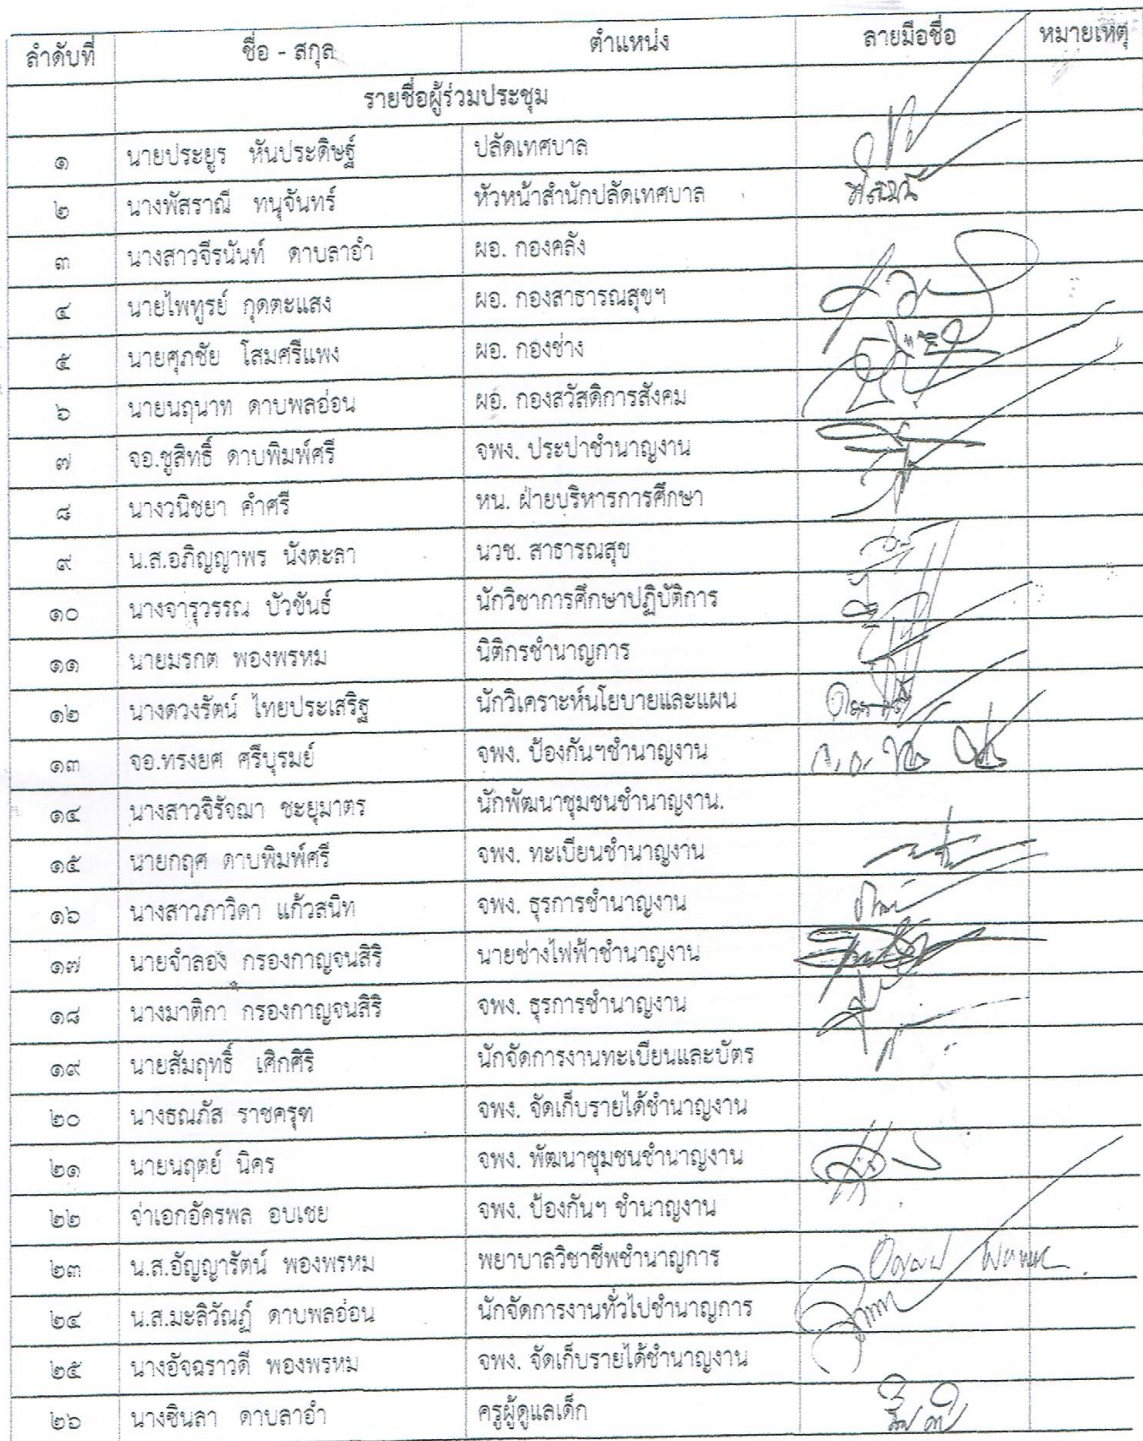 ลำดับที่ ชื่อ - สกุล ตำแหน่ง ลายมือชื่อ หมายเหตุ
รายชื่อผู้ร่วมประชุม
๑ นายประยูร หันประดิษฐ์ ปลัดเทศบาล
๒ นางพัสราณี ทนุจันทร์ หัวหน้าสำนักปลัดเทศบาล
๓ นางสาวจีรนันท์ ดาบลาอำ ผอ. กองคลัง
๔ นายไพทูรย์ กุดตะแสง ผอ. กองสาธารณสุขฯ
๕ นายศุภชัย โสมศรีแพง ผอ. กองช่าง
๖ นายนฤนาท ดาบพลอ่อน ผอ. กองสวัสดิการสังคม
๗ จอ.ชูสิทธิ์ ดาบพิมพ์ศรี จพง. ประปาชำนาญงาน
๘ นางวนิชยา คำศรี หน. ฝ่ายบริหารการศึกษา
๙ น.ส.อภิญญาพร นังตะลา นวช. สาธารณสุข
๑๐ นางจารุวรรณ บัวขันธ์ นักวิชาการศึกษาปฏิบัติการ
๑๑ นายมรกต พองพรหม นิติกรชำนาญการ
๑๒ นางดวงรัตน์ ไทยประเสริฐ นักวิเคราะห์นโยบายและแผน
๑๓ จอ.ทรงยศ ศรีบุรมย์ จพง. ป้องกันฯชำนาญงาน
๑๔ นางสาวจิรัจฌา ชะยุมาตร นักพัฒนาชุมชนชำนาญงาน.
๑๕ นายกฤศ ดาบพิมพ์ศรี จพง. ทะเบียนชำนาญงาน
๑๖ นางสาวภาวิดา แก้วสนิท จพง. ธุรการชำนาญงาน
๑๗ นายจำลอง กรองกาญจนสิริ นายช่างไฟฟ้าชำนาญงาน
๑๘ นางมาติกา กรองกาญจนสิริ จพง. ธุรการชำนาญงาน
๑๙ นายสัมฤทธิ์ เศิกศิริ นักจัดการงานทะเบียนและบัตร
๒๐ นางธณภัส ราชครุฑ จพง. จัดเก็บรายได้ชำนาญงาน
๒๑ นายนฤตย์ นิคร จพง. พัฒนาชุมชนชำนาญงาน
๒๒ จ่าเอกอัครพล อบเชย จพง. ป้องกันฯ ชำนาญงาน
๒๓ น.ส.อัญญารัตน์ พองพรหม พยาบาลวิชาชีพชำนาญการ
๒๔ น.ส.มะลิวัณฏ์ ดาบพลอ่อน นักจัดการงานทั่วไปชำนาญการ
๒๕ นางอัจฉราวดี พองพรหม จพง. จัดเก็บรายได้ชำนาญงาน
๒๖ นางชินลา ดาบลาอำ ครูผู้ดูแลเด็ก